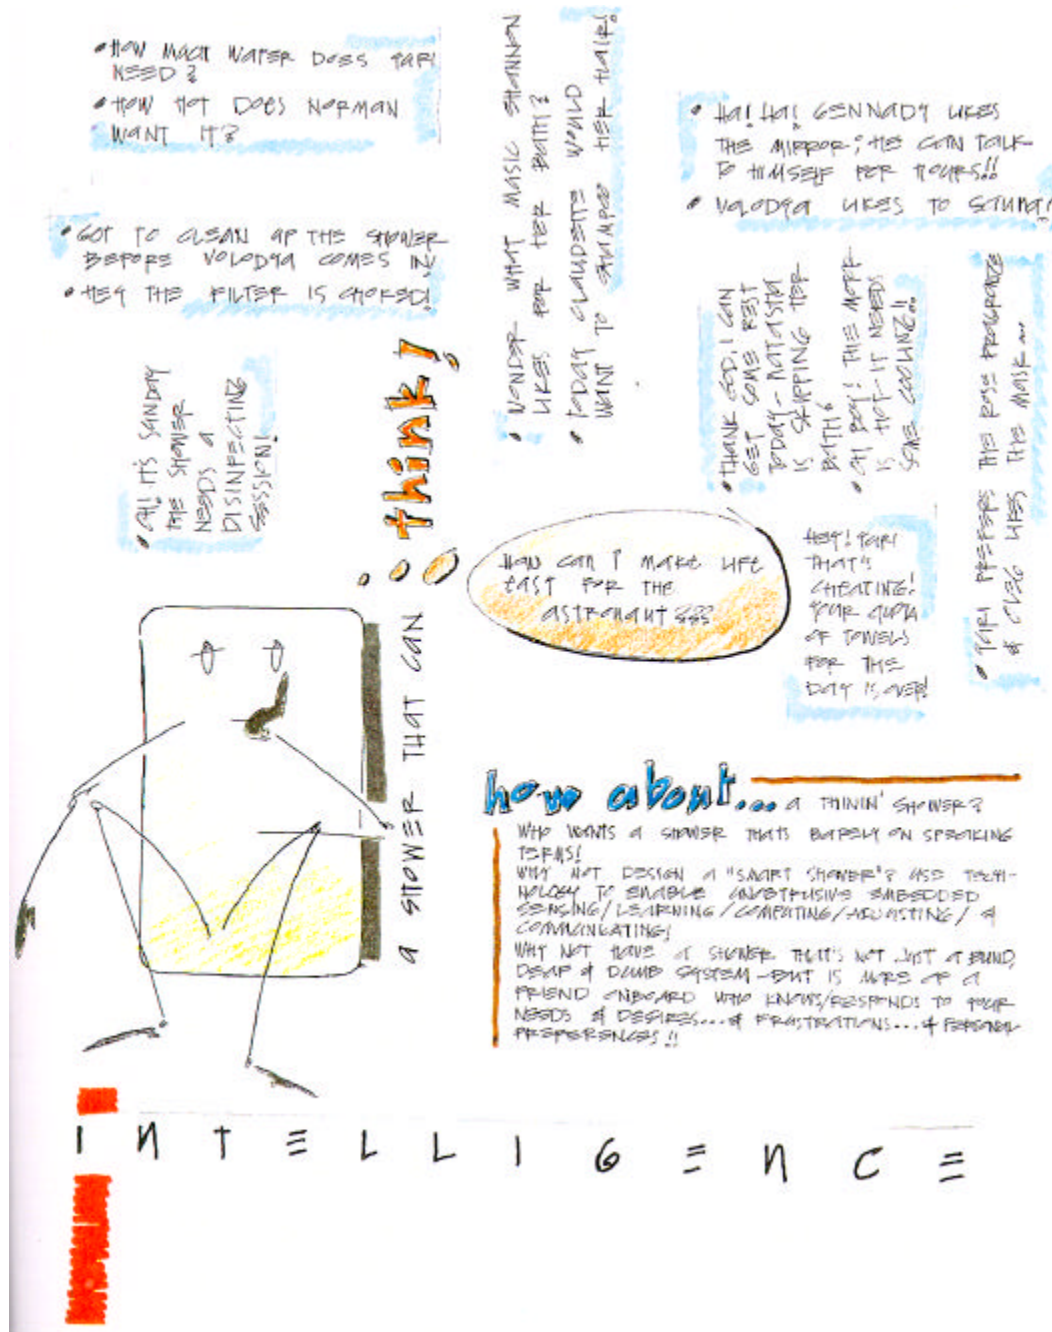 • HOW MUCH WATER DOES YURI
NEED?
• HOW HOT DOES NORMAN
WANT IT?
• GOT TO CLEAN UP THE SHOWER
BEFORE VOLODYA COMES IN!
• HEY THE FILTER IS CHOKED!
• AH! IT'S SUNDAY
THE SHOWER
NEEDS A
DISINFECTING
SESSION!
• WONDER WHAT MUSIC SHANNON
LIKES FOR HER BATH?
• TODAY CLAUDETTE WOULD
WANT TO SHAMPOO HER HAIR!
• HA! HA! GENNADY LIKES
THE MIRROR; HE CAN TALK
TO HIMSELF FOR HOURS!!
• VOLODYA LIKES TO SAUNA!
• THANK GOD, I CAN
GET SOME REST
TODAY - NATASHA
IS SKIPPING HER
BATH!
• OH BOY! THE MOFF
IS HOT - IT NEEDS
SOME COOLING!!
• YURI PREFERS THE ROSE FRAGRANCE
& OLEG LIKES THE MUSK...
HEY! YURI
THAT'S
CHEATING!
YOUR QUOTA
OF TOWELS
FOR THE
DAY IS OVER!
HOW CAN I MAKE LIFE
EASY FOR THE
ASTRONAUT ???
A SHOWER THAT CAN
...think!
how about... A THINKIN' SHOWER?
WHO WANTS A SHOWER THATS BARELY ON SPEAKING
TERMS!
WHY NOT DESIGN A "SMART SHOWER"? USE TECH-
NOLOGY TO ENABLE UNOBTRUSIVE EMBEDDED
SENSING/LEARNING/COMPUTING/ADJUSTING/ &
COMMUNICATING!
WHY NOT HAVE A SHOWER THAT'S NOT JUST A BLIND,
DEAF & DUMB SYSTEM - BUT IS MORE OF A
FRIEND ONBOARD WHO KNOWS/RESPONDS TO YOUR
NEEDS & DESIRES...& FRUSTRATIONS...& PERSONAL
PREFERENCES!!
INTELLIGENCE